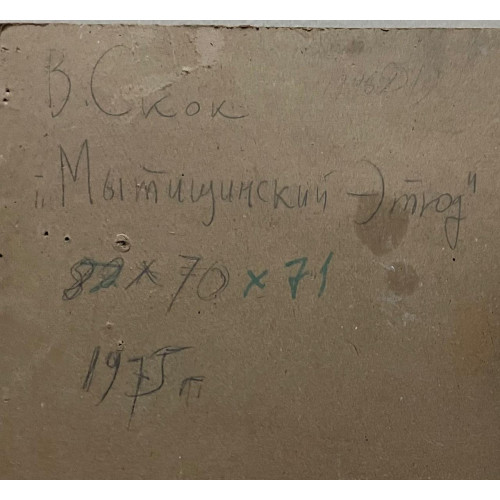 В. Скок
„Мытищинский Этюд"
82 x 70 x 71
1975 г